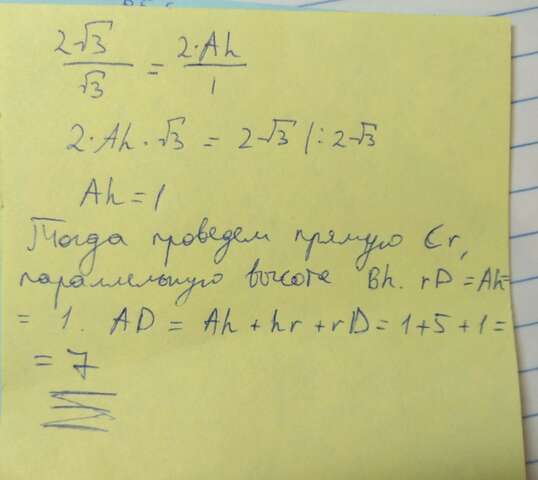 2√3/√3 = 2·Ah/1
2·Ah·√3 = 2√3 |:2√3
Ah = 1
Тогда проведем прямую Cr,
параллельную высоте Bh. rD = Ah=
= 1. AD = Ah + hr + rD = 1+5+1=
= 7